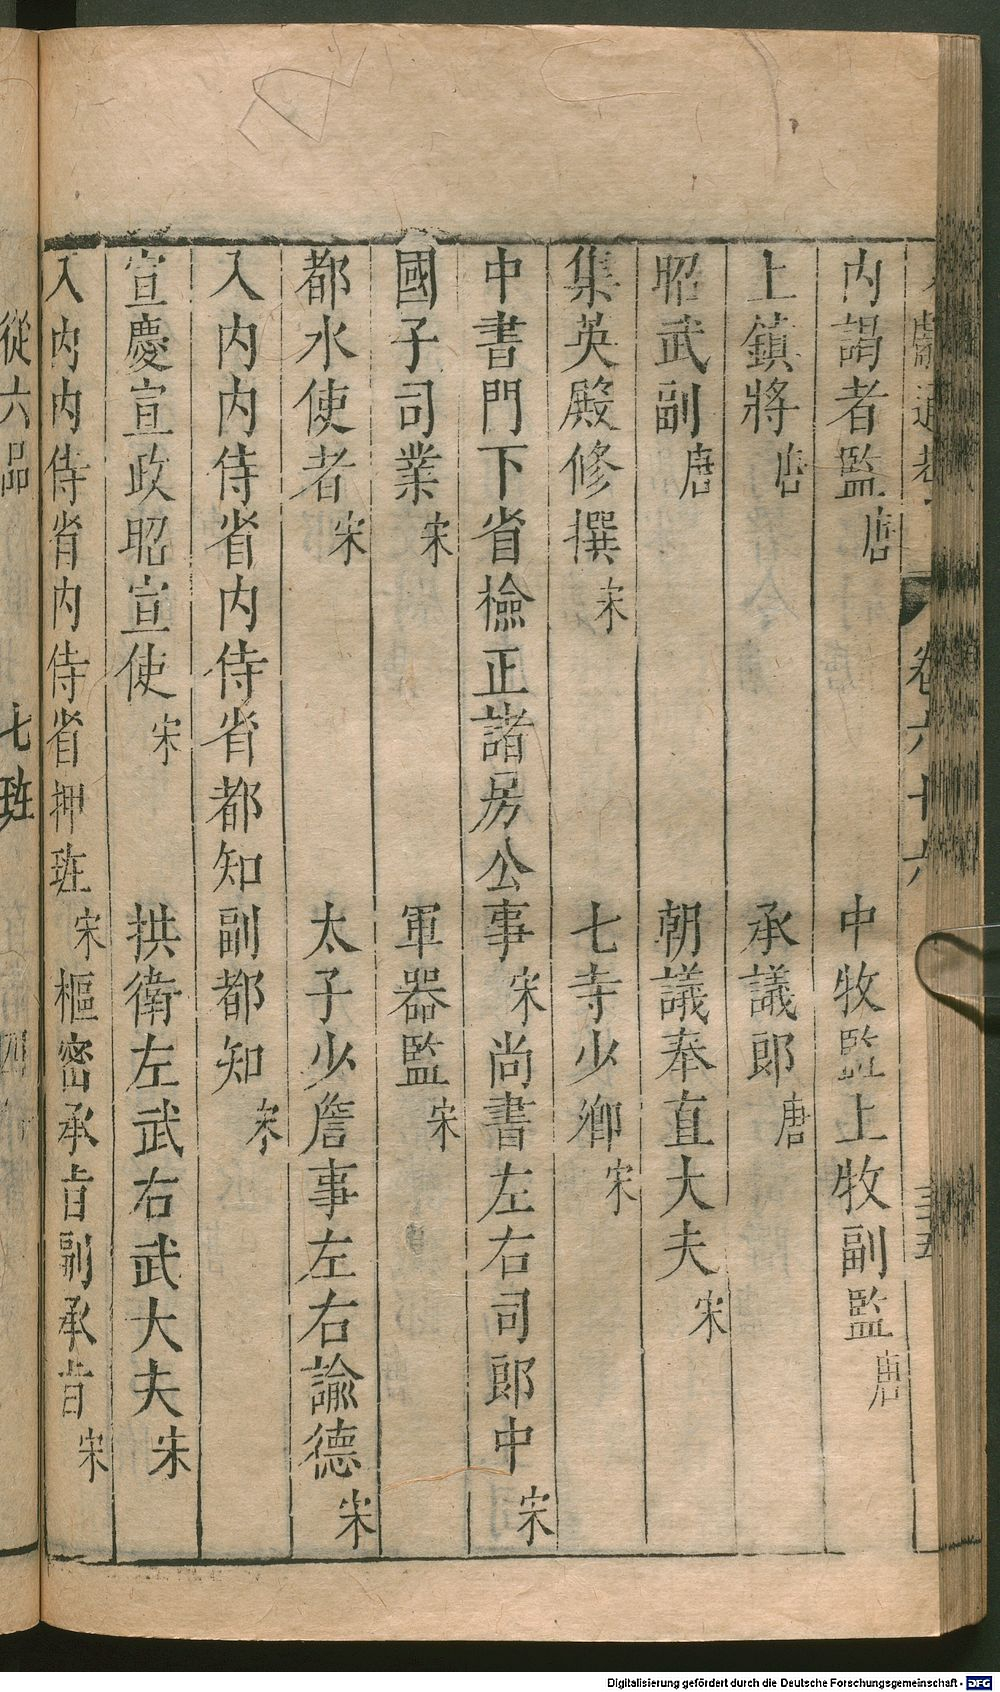 文獻通考 卷六十六 三十五
内謁者監唐 中牧監上牧副監唐
上鎮將唐 承議郎唐
昭武副唐 朝議奉直大夫宋
集英殿修撰宋 七寺少卿宋
中書門下省檢正諸房公事宋尚書左右司郎中宋
國子司業宋 軍器監宋
都水使者宋 太子少詹事左右諭德宋
入内内侍省内侍省都知副都知宋
宣慶宣政昭宣使宋 拱衛左武右武大夫宋
入内内侍省内侍省押班宋樞密承旨副承旨宋
從六品 七班
Digitalisierung gefördert durch die Deutsche Forschungsgemeinschaft - DFG